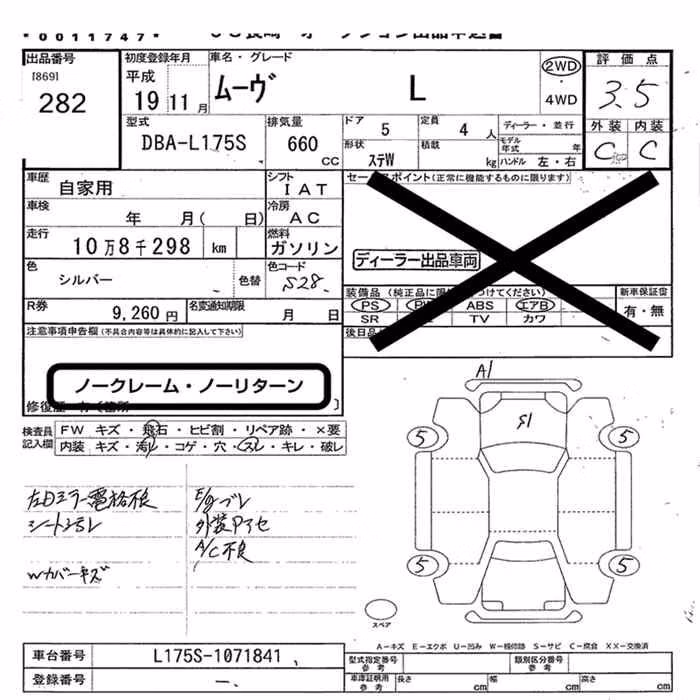 *0011747*
出品番号
18691
282
初度登録年月
平成
19 11月
車名・グレード
ムーヴ L
2WD
・
4WD
評価点
3.5
外装 内装
C C
型式
DBA-L175S
排気量
660
CC
ドア 5
定員 4 人
ディーラー・並行
形状
ステW
積載 kg
モデル年式 年
ハンドル 左・右
車歴
自家用
シフト
IAT
セールスポイント(正常に機能するものに限ります)
車検
年 月( 日)
冷房
AC
走行
10万8千298 km
燃料
ガソリン
ディーラー出品車両
色
シルバー
色替
色コード
S28
装備品(純正品に限り つけてください)
PS ABS エアB
SR TV カワ
新車保証書
有・無
R券
9,260 円
名変通知期限
月 日
後日品
注意事項申告欄(不具合内容等は具体的に記入して下さい)
ノークレーム・ノーリターン
修復歴
検査員
記入欄
FW キズ・飛石・ヒビ割・リペア跡・×要
内装 キズ・汚レ・コゲ・穴・スレ・キレ・破レ
左Dミラー電格不良
シートスレ
Wカバーキズ
E/gブレ
外装Pアセ
A/C不良
A1
S1
5 5
5 5
スペア
A-キズ E-エクボ U-凹み W-補修跡 S-サビ C-腐食 XX-交換済
車台番号
L175S-1071841
登録番号
一.
型式指定番号
参考
類別区分番号
参考
車庫証明用
参考
長さ cm
幅 cm
高さ cm